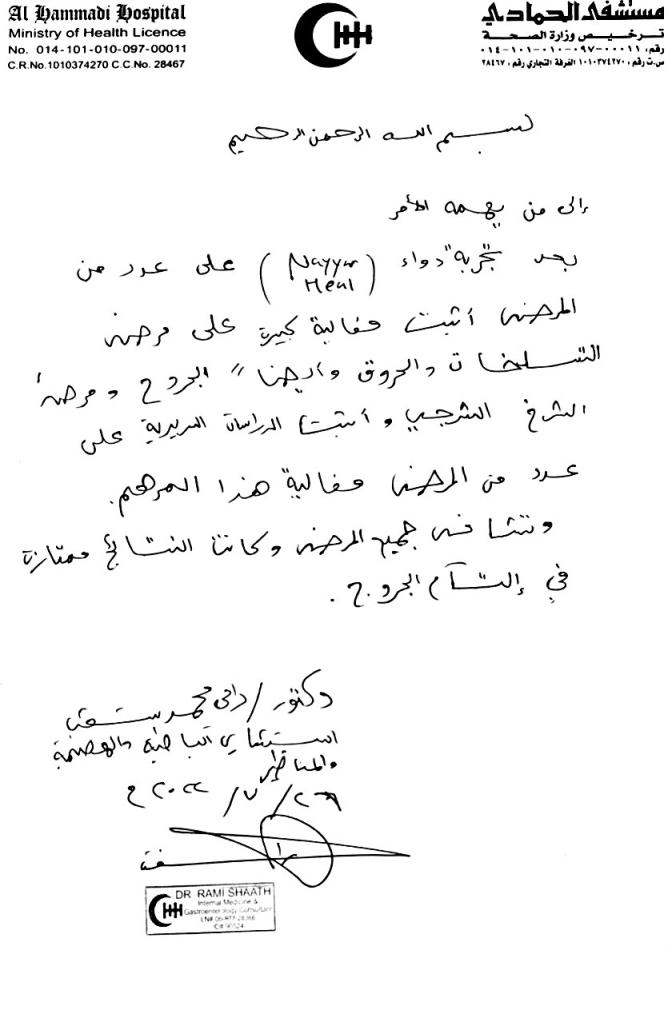 Al Hammadi Hospital
Ministry of Health Licence
No. 014-101-010-097-00011
C.R.No.1010374270 C.C.No. 28467
مستشفى الحمادي
ترخيص وزارة الصحة
رقم، ٠١٤-١٠١-٠١٠-٠٩٧-٠٠٠١١
س.ت رقم، ١٠١٠٣٧٤٢٧٠ الغرفة التجاري رقم، ٢٨٤٦٧
بسم الله الرحمن الرحيم
إلى من يهمه الأمر
بعد تجربة دواء (Nayyar Heal) على عدد من
المرضى أثبت فعالية كبيرة على مرضى
التسلخات والحروق وأيضا" الجروح ومرضى
الشرخ الشرجي وأثبتت الدراسات السريرية على
عدد من المرضى فعالية هذا المرهم.
وتشافى جميع المرضى وكانت النتائج ممتازة
في إلتئام الجروح.
دكتور / رامي محمد شعث
استشاري الباطنة والهضمية
والمناظير
٢٠٢٢ / ٧ / ٢٦ م
DR RAMI SHAATH
Internal Medicine &
Gastroenterology Consultant